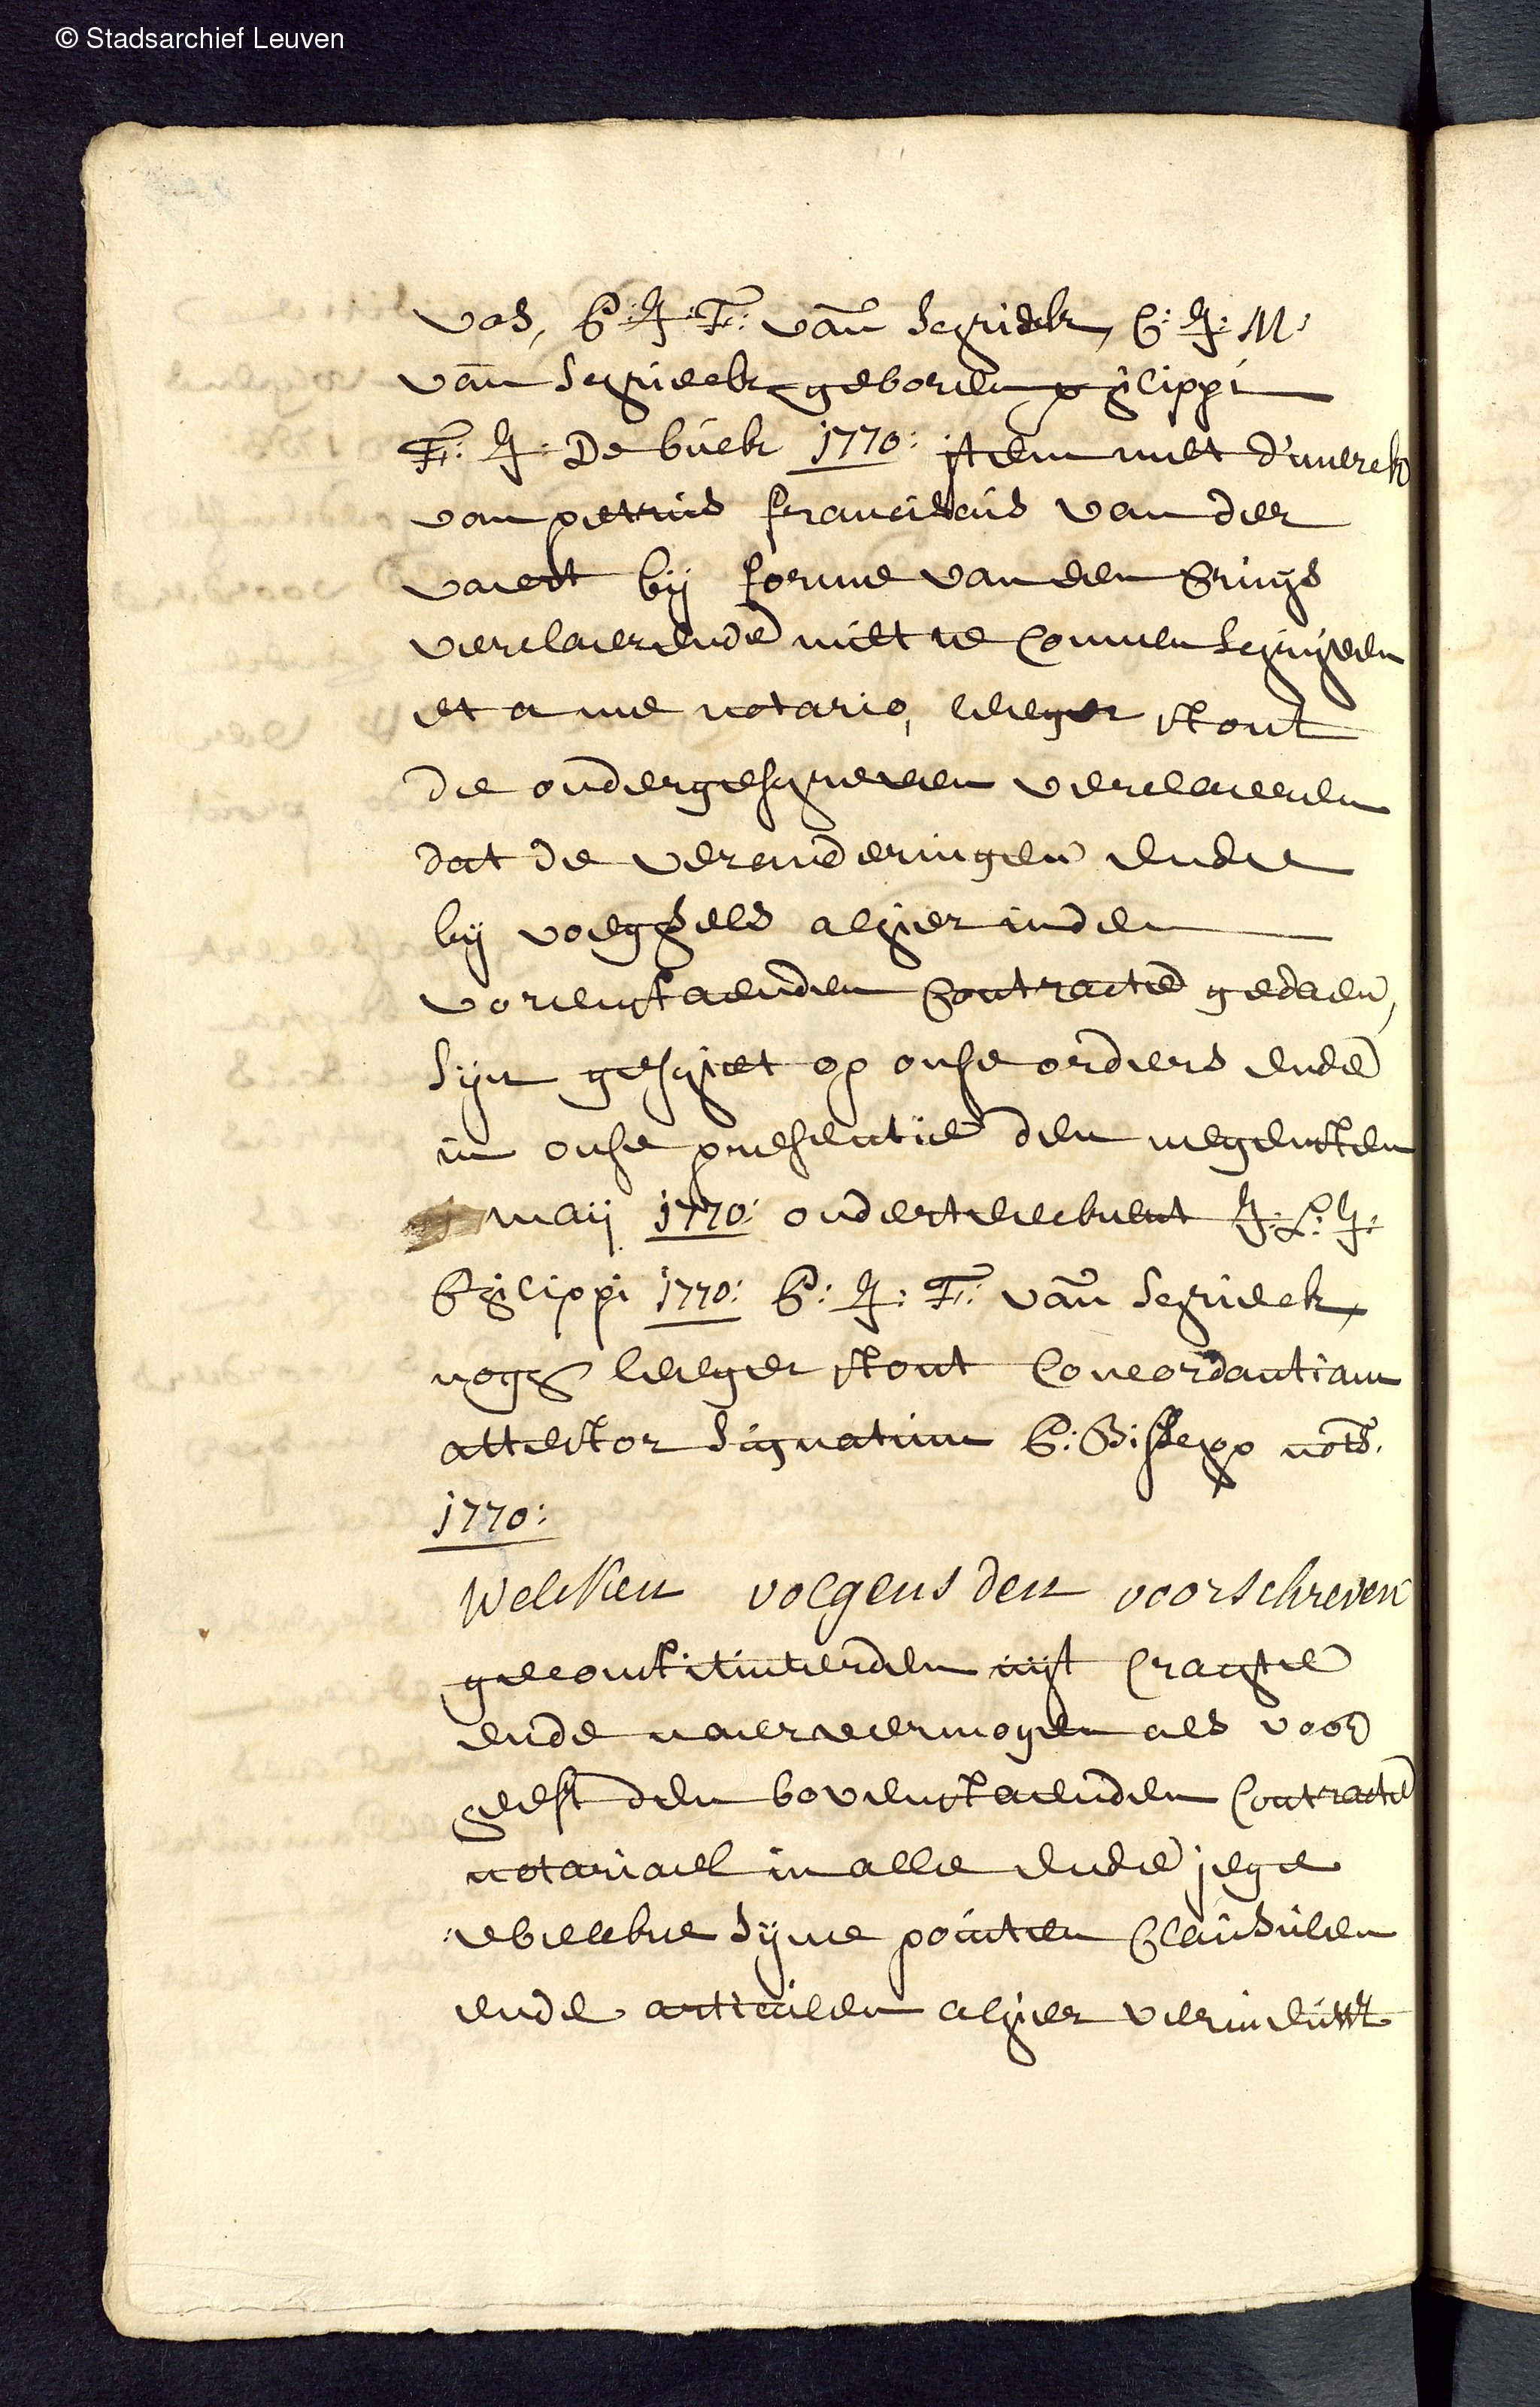 © Stadsarchief Leuven
vos, P: J: F: van Schrieck, C: J: M:
van Schrieck geboren philippi
F: J: De buck 1770: item met d'merck
van petrus franciscus van der
vaert bij forme van een Cruys
verclaerende niet te connen schrijven
et a me notario, leeger stont
de ondergeschreven verclaeren
dat de veranderingen ende
bij voeghsels alhier in den
vorenstaenden Contracte gedaen,
sijn geschiet op onse orders ende
in onse presentie den negensten
meij 1770: onderteeckent J: L: J:
Philippi 1770: P: J: F: van Schrieck,
nogh leeger stont Concordantiam
attestor signatum P: Bisschop nots.
1770:
Welcken volgens den voorschreven
geconstitueerden uijt craghte
ende naer vermogen als voor
heeft den bovenstaenden Contracte
notariael in alle ende jege
welcke syne pointen Clausulen
ende articulen alhier vernieuwt